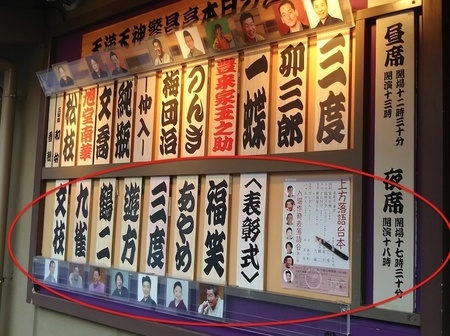 天満天神繁昌亭本日
昼席
開場十二時三十分
開演十三時
夜席
開場十七時三十分
開演十八時
三度
卯三郎
一蝶
豊来家玉之助
梅団治
仲入
純瓶
文喬
旭堂南華
松枝
上方落語台本
入選作発表落語会
〈表彰式〉
福笑
あやめ
三度
遊方
鶴二
九雀
文枝